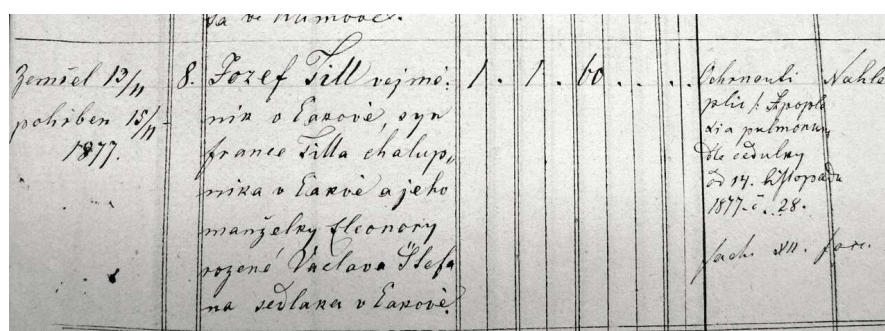 sa ve
Zemřel 13/11
pohřben 15/11
1877.
8. Jozef Till vejmě-
nik v Žakově, syn
france Tilla chalup-
nika v Žakvě a jeho
manželky Eleonory
rozené Václava Štefa
na sedlaka v Žakově.
1. 1. 60 . . .
Ochrnutí
plic /: Apople
xia pulmonum
dle cedulky
od 14. listopadu
1877 č. 28.
fasc. XII. farc.
Nahle